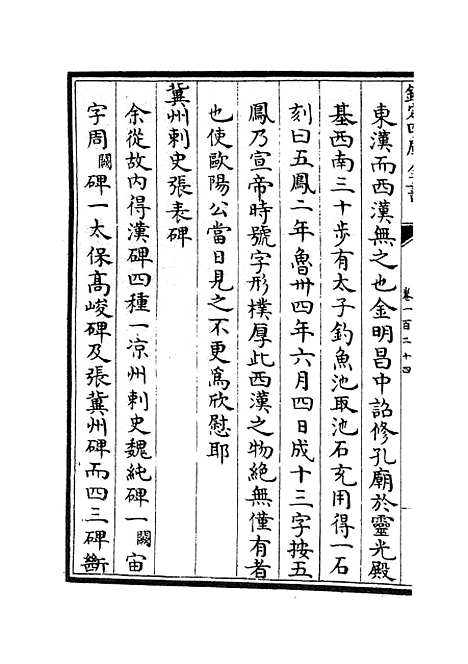 欽定四庫全書
卷一百二十四
東漢而西漢無之也金明昌中詔修孔廟於靈光殿
基西南三十步有太子釣魚池取池石充用得一石
刻曰五鳳二年魯卅四年六月四日成十三字按五
鳳乃宣帝時號字形樸厚此西漢之物絶無僅有者
也使歐陽公當日見之不更為欣慰耶
冀州刺史張表碑
余從故内得漢碑四種一涼州刺史魏純碑一闕宙
字周闕碑一太保高峻碑及張冀州碑而四三碑斷